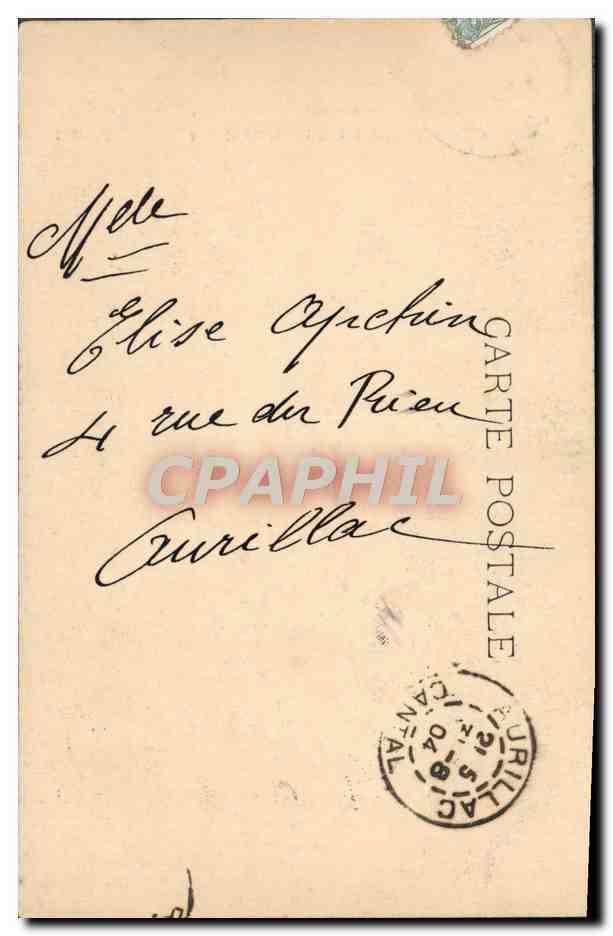 Melle
Elise Apchin
4 rue du Prieu
Aurillac
CARTE POSTALE
CPAPHIL
AURILLAC
CANTAL
04